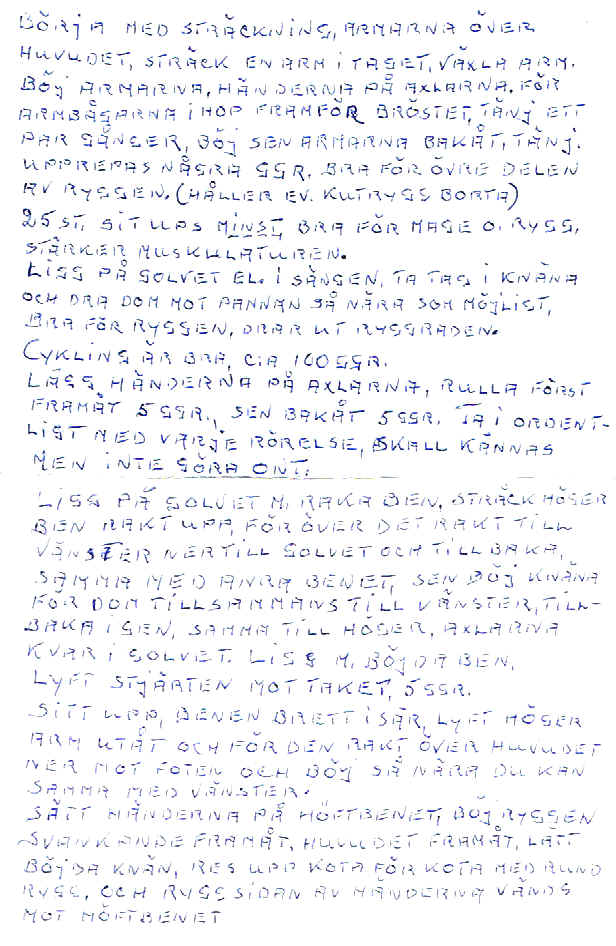 BÖRJA MED STRÄCKNING, ARMARNA ÖVER
HUVUDET, STRÄCK EN ARM I TAGET, VÄXLA ARM.
BÖJ ARMARNA, HÄNDERNA PÅ AXLARNA. FÖR
ARMBÅGARNA IHOP FRAMFÖR BRÖSTET, TÄNJ ETT
PAR GÅNGER, BÖJ SEN ARMARNA BAKÅT, TÄNJ.
UPPREPAS NÅGRA GGR. BRA FÖR ÖVRE DELEN
AV RYGGEN. (HÅLLER EV. KUTRYGG BORTA)
25 ST. SIT UPS MINST BRA FÖR MAGE O. RYGG,
STÄRKER MUSKULATUREN.
LIGG PÅ GOLVET EL. I SÄNGEN, TA TAG I KNÄNA
OCH DRA DOM MOT PANNAN SÅ NÄRA SOM MÖJLIGT,
BRA FÖR RYGGEN, DRAR UT RYGGRADEN.
CYKLING ÄR BRA, C:A 100 GGR.
LÄGG HÄNDERNA PÅ AXLARNA, RULLA FÖRST
FRAMÅT 5 GGR., SEN BAKÅT 5 GGR. TA I ORDENT-
LIGT MED VARJE RÖRELSE, SKALL KÄNNAS
MEN INTE GÖRA ONT.
LIGG PÅ GOLVET M. RAKA BEN, STRÄCK HÖGER
BEN RAKT UPP, FÖR ÖVER DET RAKT TILL
VÄNSTER NER TILL GOLVET OCH TILL BAKA,
SAMMA MED ANRA BENET, SEN BÖJ KNÄNA
FÖR DOM TILLSAMMANS TILL VÄNSTER, TILL-
BAKA IGEN, SAMMA TILL HÖGER, AXLARNA
KVAR I GOLVET. LIGG M. BÖJDA BEN,
LYFT STJÄRTEN MOT TAKET, 5 GGR.
SITT UPP, BENEN BRETT ISÄR, LYFT HÖGER
ARM UTÅT OCH FÖR DEN RAKT ÖVER HUVUDET
NER MOT FOTEN OCH BÖJ SÅ NÄRA DU KAN
SAMMA MED VÄNSTER.
SÄTT HÄNDERNA PÅ HÖFTBENET, BÖJ RYGGEN
SVANKANDE FRAMÅT, HUVUDET FRAMÅT, LÄTT
BÖJDA KNÄN, RES UPP KOTA FÖR KOTA MED RUND
RYGG, OCH RYGGSIDAN AV HÄNDERNA VÄNDS
MOT HÖFTBENET